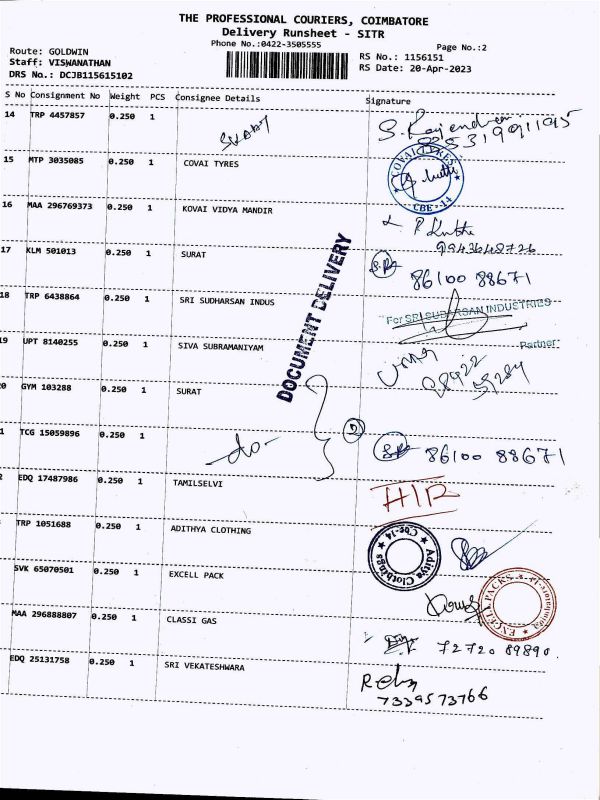 THE PROFESSIONAL COURIERS, COIMBATORE
Delivery Runsheet - SITR
Phone No.:0422-3505555
Page No.:2
Route: GOLDWIN
Staff: VISWANATHAN
DRS No.: DCJB115615102
RS No.: 1156151
RS Date: 20-Apr-2023
S No Consignment No Weight PCS Consignee Details Signature
14 TRP 4457857 0.250 1 S. Rajendran
15 MTP 3035085 0.250 1 COVAI TYRES
COVAI TYRES CBE-14
16 MAA 296769373 0.250 1 KOVAI VIDYA MANDIR
9943648726
17 KLM 501013 0.250 1 SURAT 86100 88671
18 TRP 6438864 0.250 1 SRI SUDHARSAN INDUS
For SRI SUDARSAN INDUSTRIES
Partner
19 UPT 8140255 0.250 1 SIVA SUBRAMANIYAM
DOCUMENT DELIVERY
GYM 103288 0.250 1 SURAT
2
1 TCG 15059896 0.250 1 -do- 86100 88671
2 EDQ 17487986 0.250 1 TAMILSELVI
HIR
TRP 1051688 0.250 1 ADITHYA CLOTHING
Aditya Clothings Cbe-14
SVK 65070501 0.250 1 EXCELL PACK
EXCEL PACKS
MAA 296888807 0.250 1 CLASSI GAS 72720 89890
EDQ 25131758 0.250 1 SRI VEKATESHWARA
7339573766